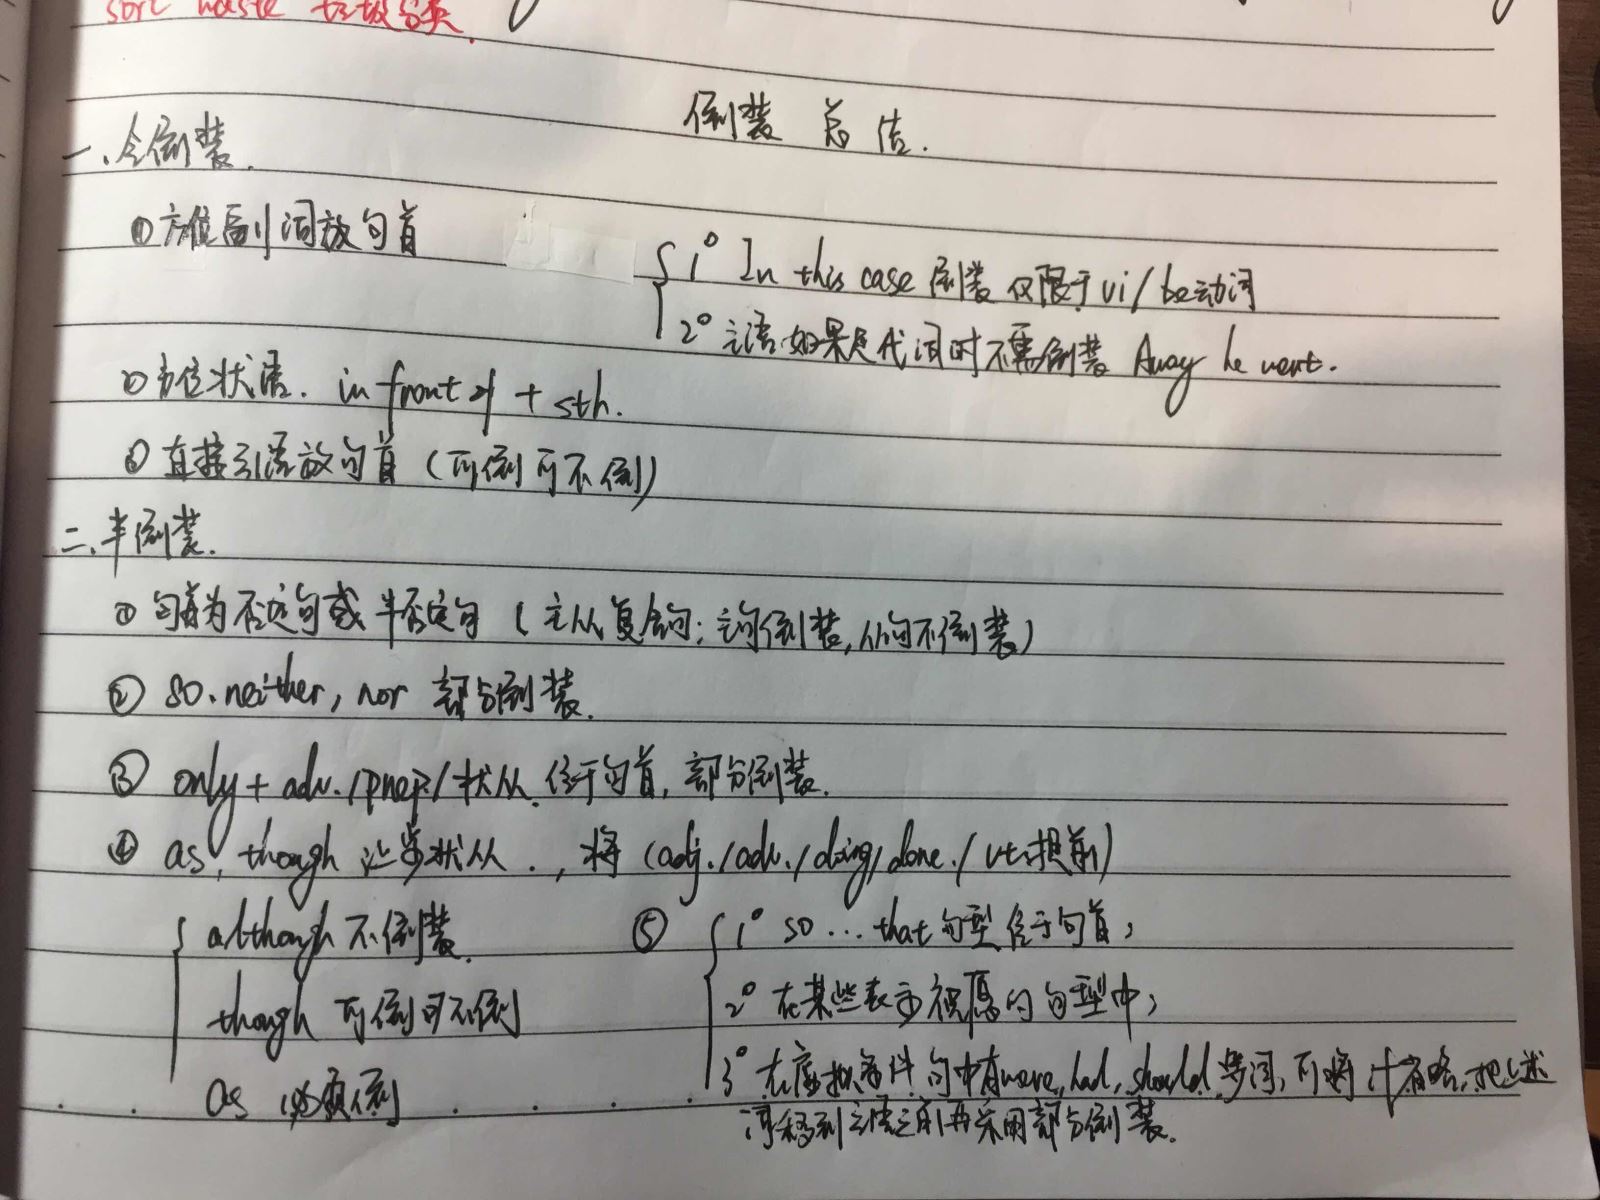 sort waste 垃圾分类.
倒装 总结.
一、全倒装.
①方位副词放句首
{ 1° In this case 倒装 仅限于 vi/be动词
2° 主语如果是代词时不需倒装 Away he went.
②方位状语. in front of + sth.
③直接引语放句首(可倒可不倒)
二、半倒装.
①句首为否定句或半否定句(主从复合句:主句倒装,从句不倒装)
② so. neither, nor 部分倒装.
③ only + adv./prep/状从.位于句首,部分倒装.
④ as, though 让步状从., 将(adj./adv./doing/done./vt.提前)
{ although 不倒装.
though 可倒可不倒
as 必须倒
⑤ { 1° so ... that句型位于句首;
2° 在某些表示祝愿的句型中;
3° 在虚拟条件句中有were, had, should等词,可将if省略,把上述
词移到主语之前再采用部分倒装.